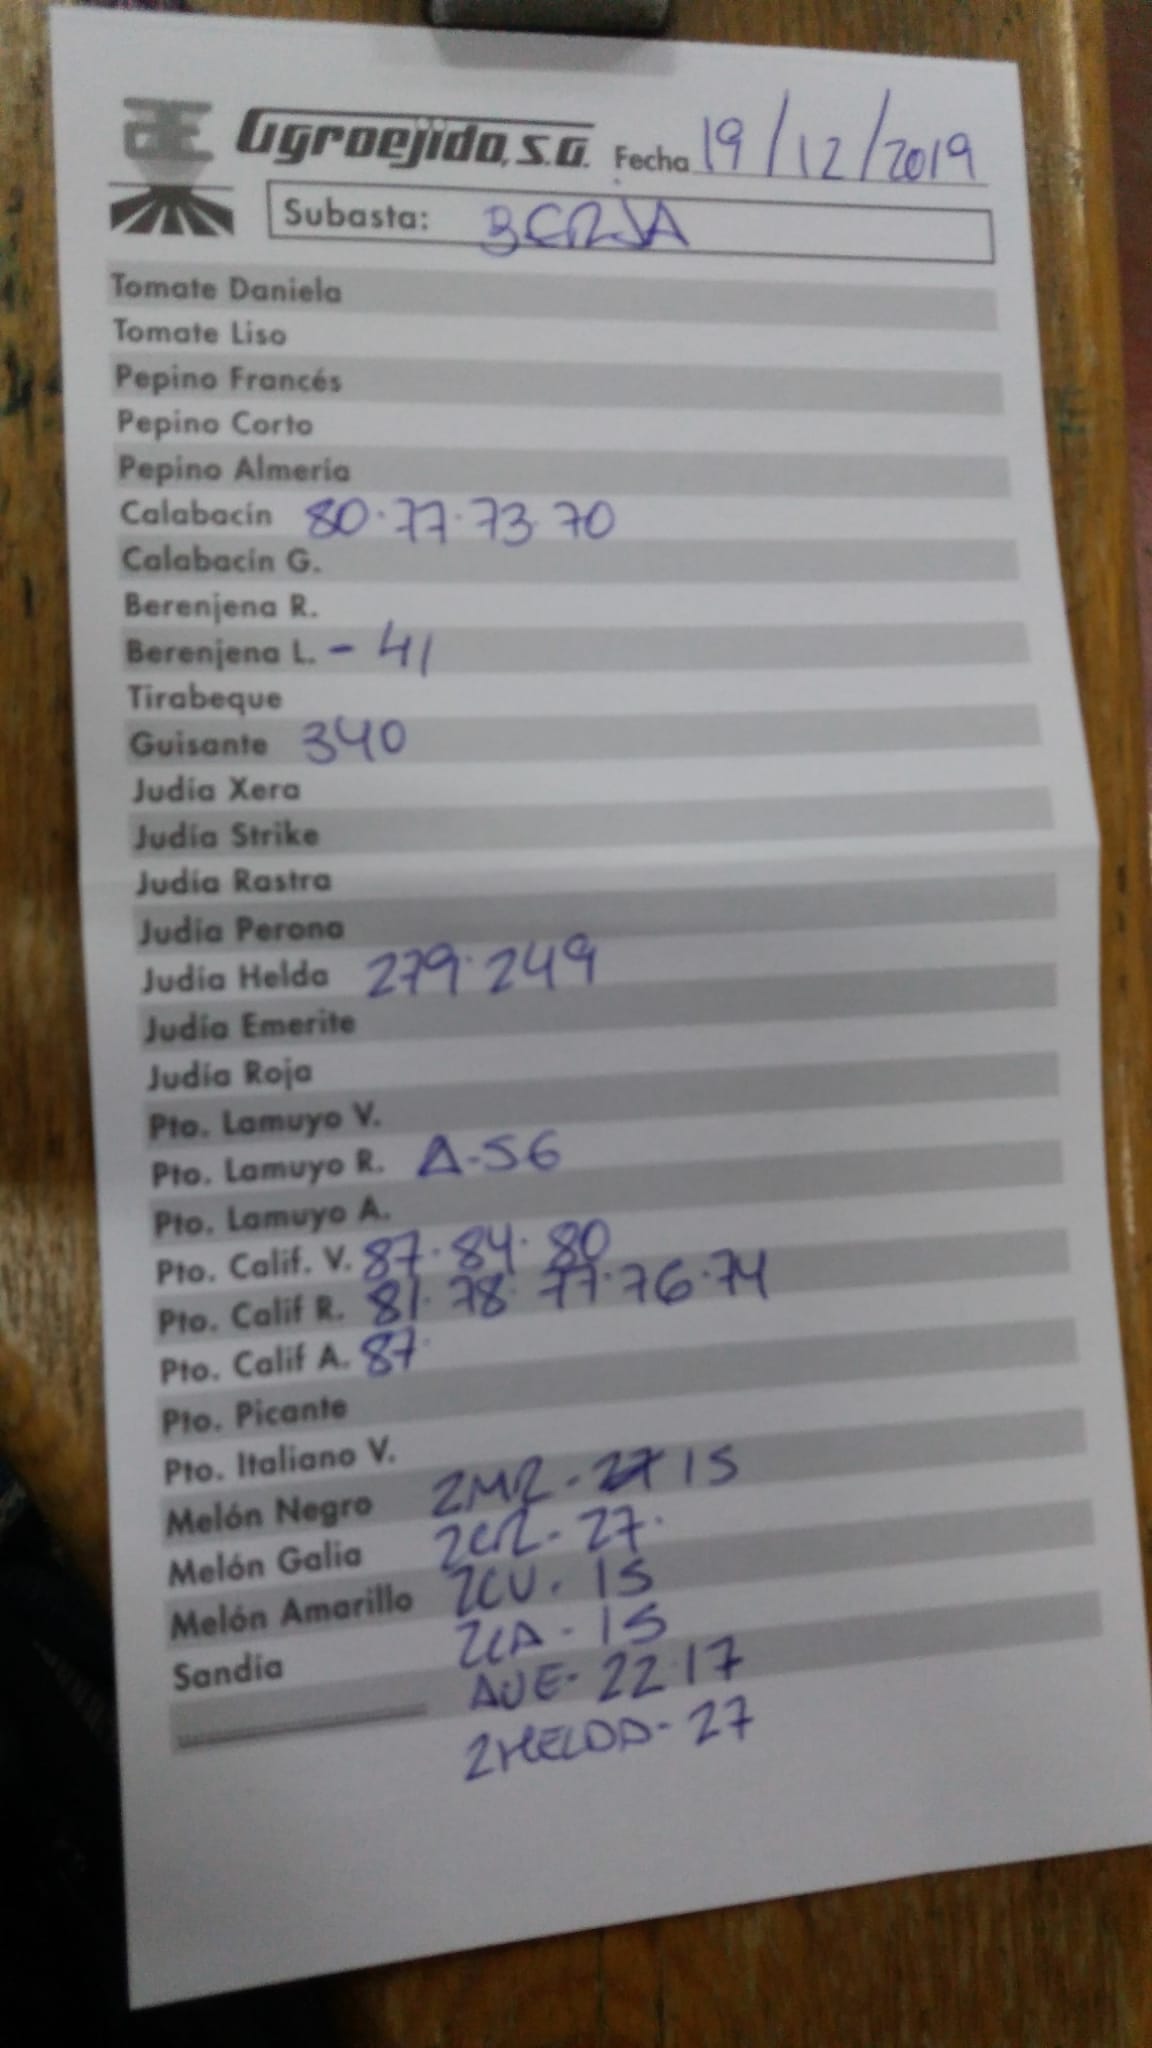 Agroejido, S.A. Fecha 19/12/2019
Subasta: BERJA
Tomate Daniela
Tomate Liso
Pepino Francés
Pepino Corto
Pepino Almería
Calabacín 80·77·73·70
Calabacín G.
Berenjena R.
Berenjena L. - 41
Tirabeque
Guisante 340
Judía Xera
Judía Strike
Judía Rastra
Judía Perona
Judía Helda 279·249
Judía Emerite
Judía Roja
Pto. Lamuyo V.
Pto. Lamuyo R. A-56
Pto. Lamuyo A.
Pto. Calif. V. 87·84·80
Pto. Calif R. 81·78·77·76·74
Pto. Calif A. 87·
Pto. Picante
Pto. Italiano V.
Melón Negro 2MR - 15
Melón Galia 2CR - 27·
Melón Amarillo 2CV - 15
Sandía 2CA - 15
AVE - 22·17
2HELDA - 27